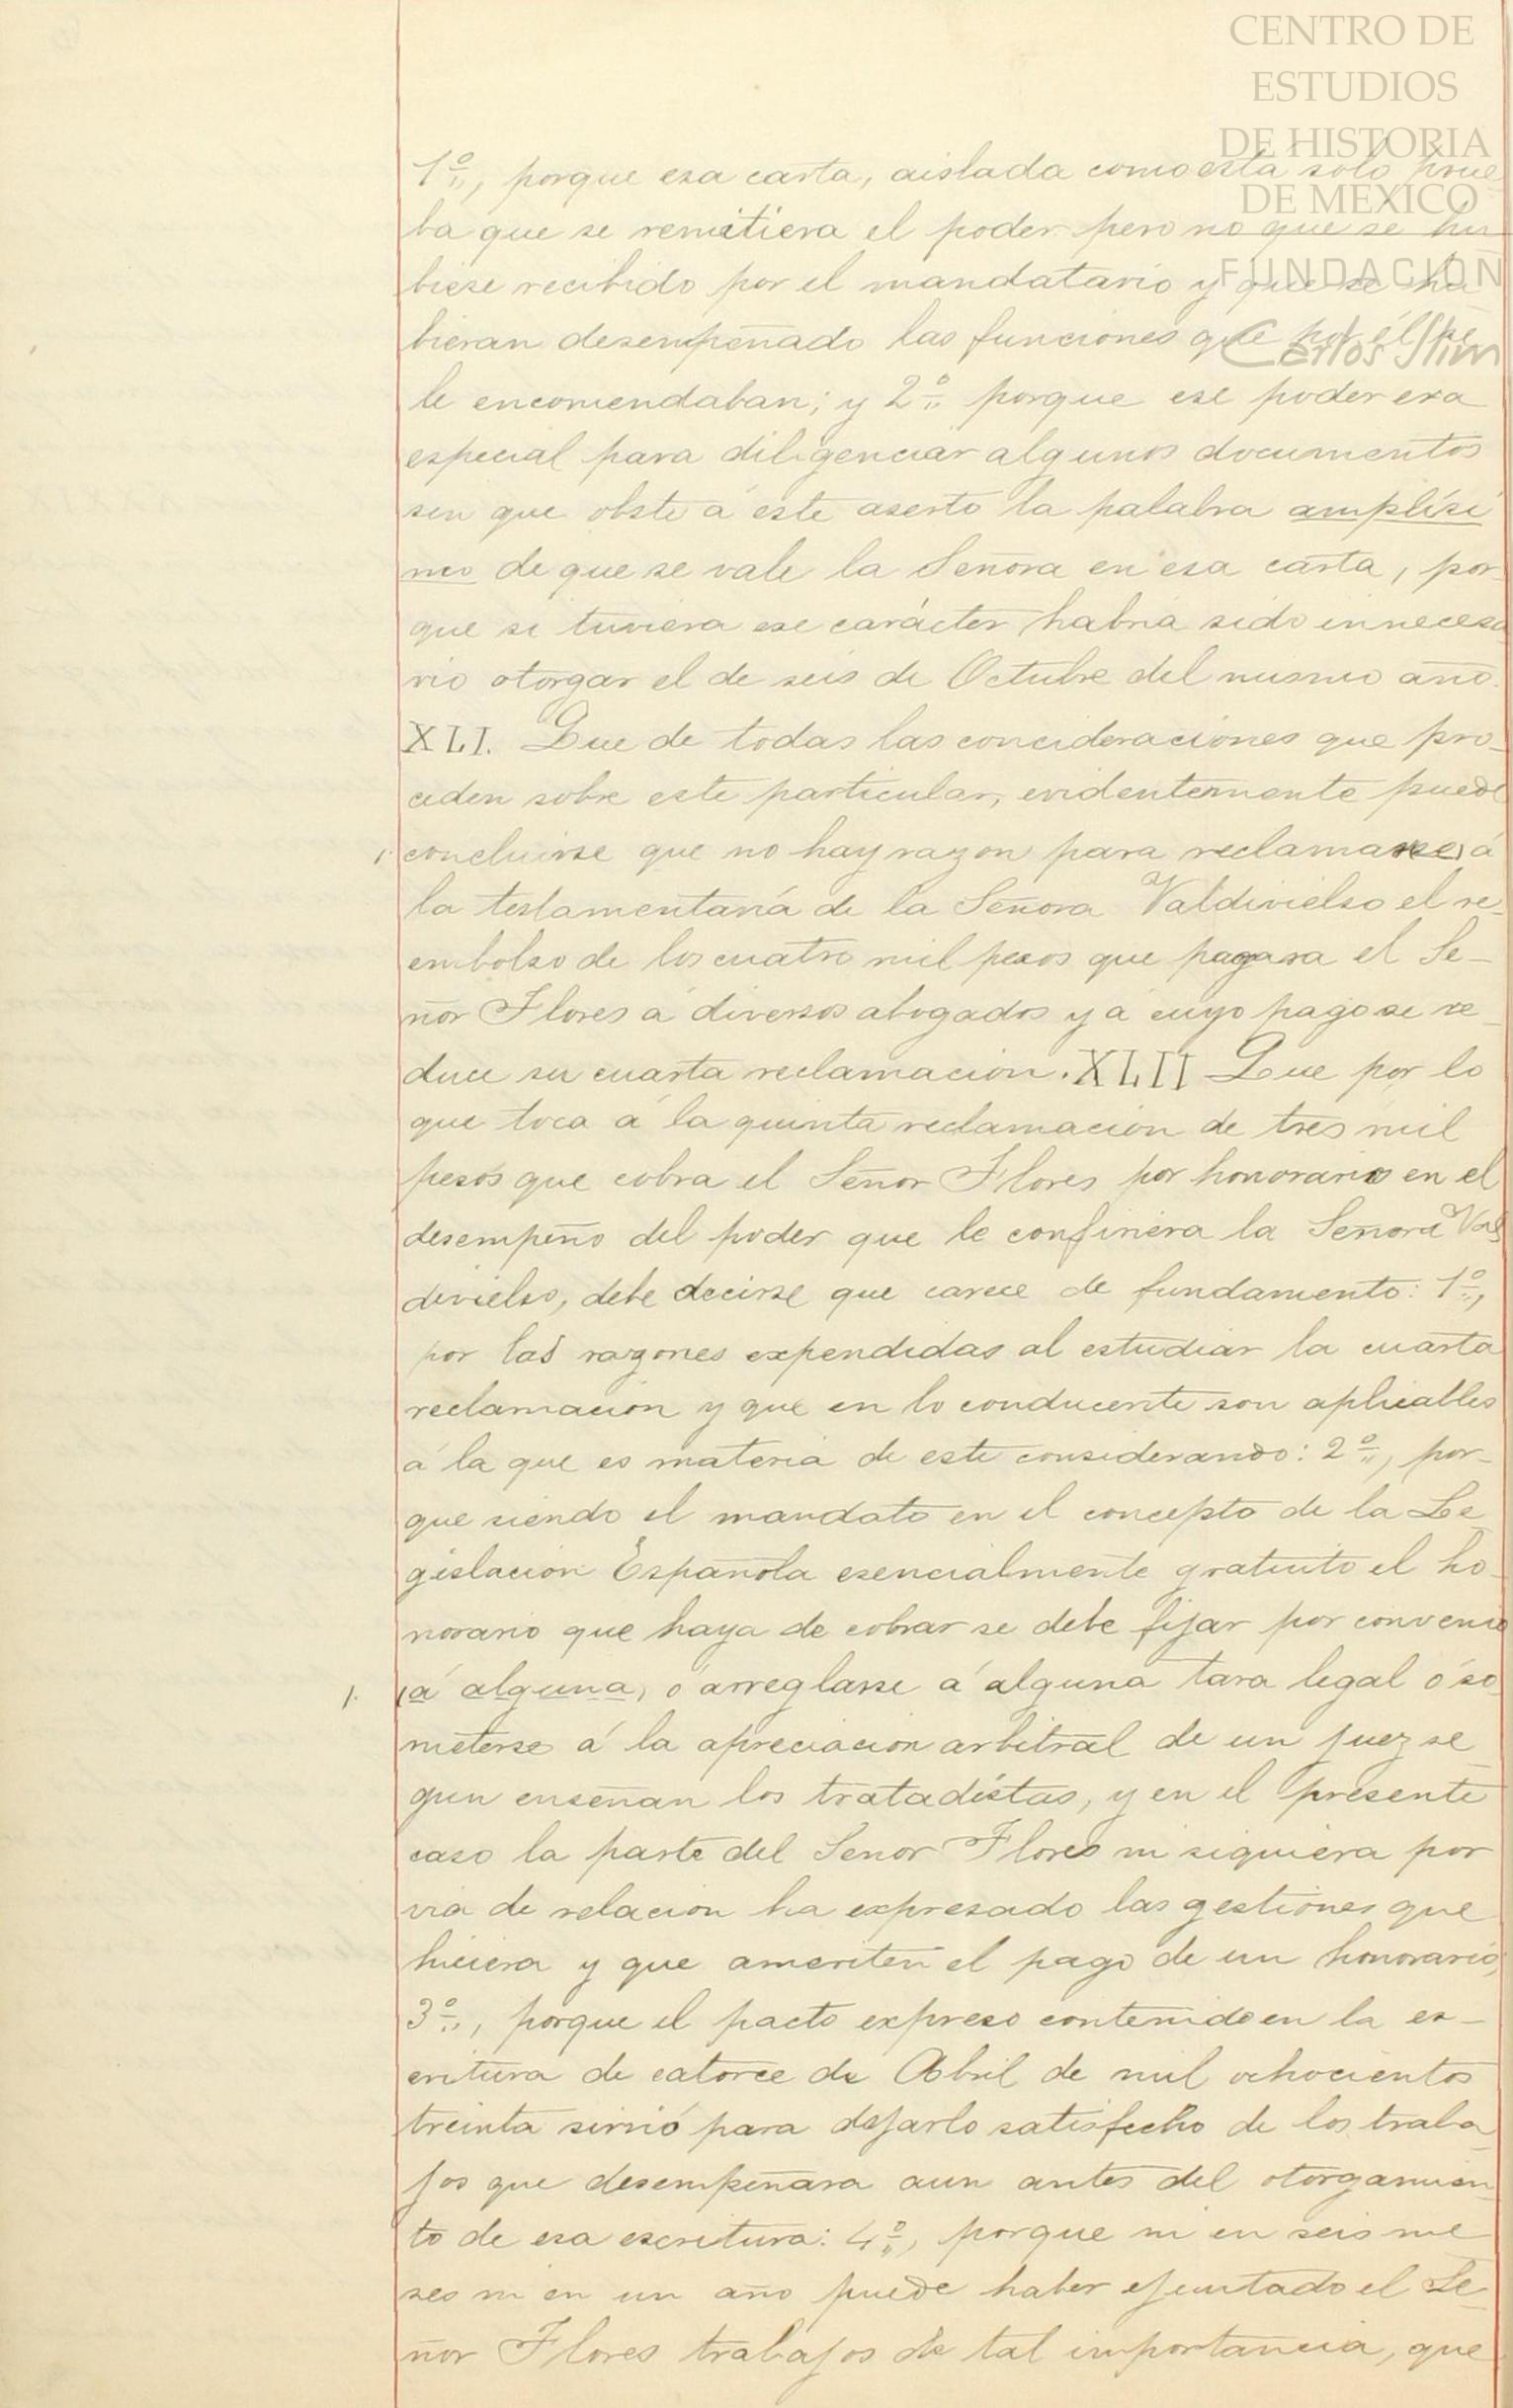 CENTRO DE
ESTUDIOS
DE HISTORIA
DE MEXICO
FUNDACIÓN
Carlos Slim
1º, porque esa carta, aislada como está solo prue
ba que se remitiera el poder pero no que se hu
biese recibido por el mandatario y que se hu
bieran desempeñado las funciones que por él se
le encomendaban; y 2º porque ese poder era
especial para diligenciar algunos documentos
sin que obste á este aserto la palabra amplísi
mo de que se vale la Señora en esa carta, por
que si tuviera ese carácter habria sido inneceza
rio otorgar el de seis de Octubre del mismo año.
XLI. Que de todas las concideraciones que pro-
ceden sobre este particular, evidentemente puede
concluirse que no hay razon para reclamarse á
la testamentaria de la Señora Valdivielso el re-
embolso de los cuatro mil pesos que pagara el Se-
ñor Flores á diversos abogados y á cuyo pago se re-
duce su cuarta reclamación. XLII Que por lo
que toca á la quinta reclamacion de tres mil
pesos que cobra el Señor Flores por honorarios en el
desempeño del poder que le confiriera la Señora Val
divielso, debe decirse que carece de fundamento: 1º,
por las razones expendidas al estudiar la cuarta
reclamación y que en lo conducente son aplicables
á la que es materia de este considerando: 2º, por-
que siendo el mandato en el concepto de la Le-
gislación Española esencialmente gratuito el ho-
norario que haya de cobrar se debe fijar por convenio
(á alguna) ó arreglarse á alguna tara legal ó so
meterse á la apreciacion arbitral de un juez se-
gun enseñan los tratadistas, y en el presente
caso la parte del Señor Flores ni siquiera por
via de relacion ha expresado las gestiones que
hiciera y que ameriten el pago de un honorario;
3º, porque el pacto expreso contenido en la es-
critura de catorce de Abril de mil ochocientos
treinta sirvió para dejarlo satisfecho de los traba
jos que desempeñara aun antes del otorgamien
to de esa escritura: 4º, porque ni en seis me
ses ni en un año puede haber ejecutado el Se
ñor Flores trabajos de tal importancia, que